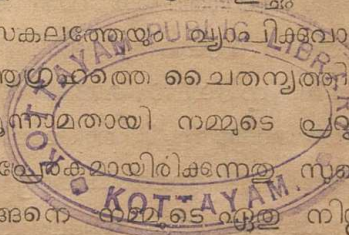 സകലത്തേയും വ്യാപിക്കുവാ
ഗ്രഹത്തെ ചൈതന്യത്തി
നാമതായി നമ്മുടെ പ്ര
പ്രേരകമായിരിക്കുന്നതു
ങ്ങനെ നമ്മുടെ ഏതു നി
KOTTAYAM PUBLIC LIBRARY
KOTTAYAM.